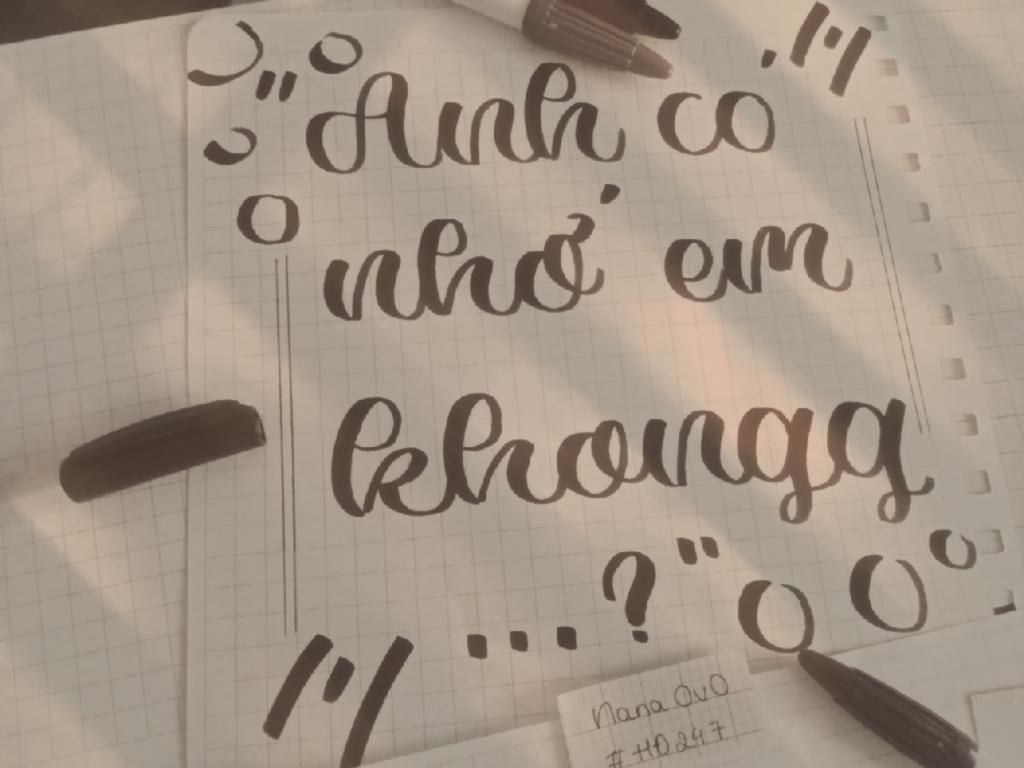 "Anh có
nhớ em
khongg
...?"
Nana OvO
#HD247